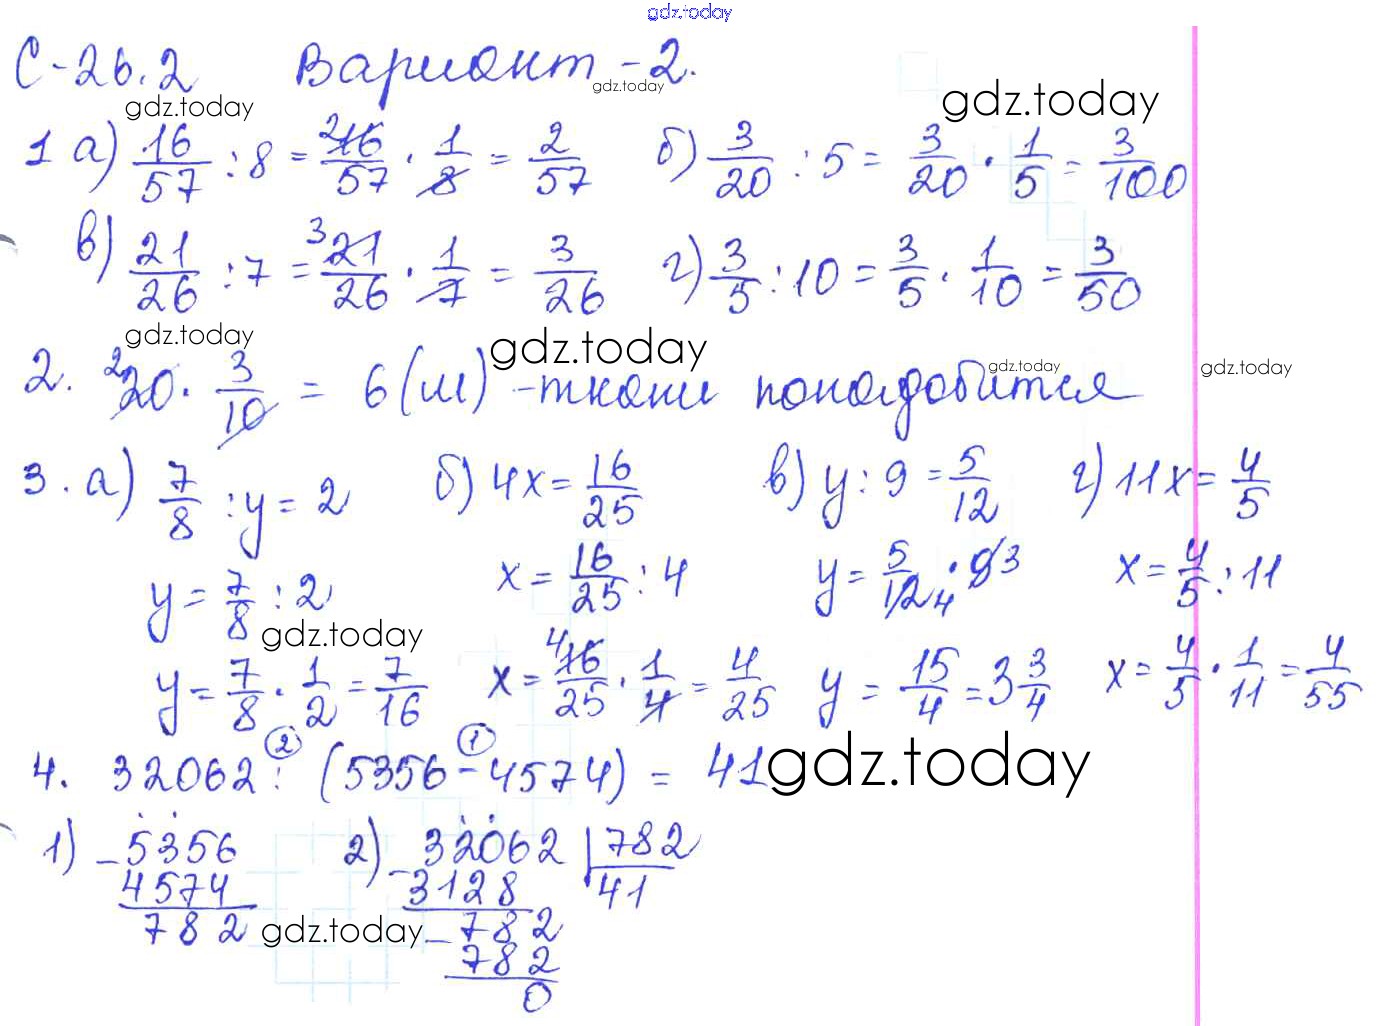 gdz.today
С-26.2 Вариант-2.
gdz.today gdz.today gdz.today
1 а) 16/57 : 8 = 16/57 · 1/8 = 2/57 б) 3/20 : 5 = 3/20 · 1/5 = 3/100
в) 21/26 : 7 = 21/26 · 1/7 = 3/26 г) 3/5 : 10 = 3/5 · 1/10 = 3/50
gdz.today gdz.today gdz.today gdz.today
2. 20 · 3/10 = 6 (м) - ткани понадобится
3. а) 7/8 : y = 2 б) 4x = 16/25 в) y : 9 = 5/12 г) 11x = 4/5
y = 7/8 : 2 x = 16/25 : 4 y = 5/12 · 9 x = 4/5 : 11
gdz.today
y = 7/8 · 1/2 = 7/16 x = 16/25 · 1/4 = 4/25 y = 15/4 = 3 3/4 x = 4/5 · 1/11 = 4/55
2 1
4. 32062 : (5356 - 4574) = 41 gdz.today
1) - 5356 2) - 32062 | 782
4574 3128 41
782 gdz.today - 782
782
0